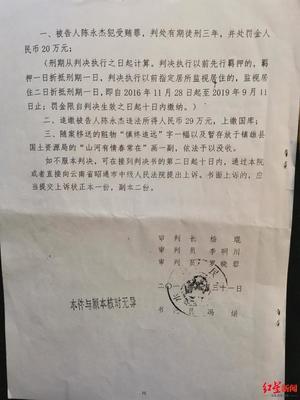 一、被告人陈永杰犯受贿罪，判处有期徒刑三年，并处罚金人
民币20万元；
（刑期从判决执行之日起计算。判决执行以前先行羁押的，羁
押一日折抵刑期一日，判决执行以前指定居所监视居住的，监视居
住二日折抵刑期一日，即自2016年11月28日起至2019年9月11
日止；罚金限自判决生效之日起十日内缴纳。）
二、追缴被告人陈永杰违法所得人民币29万元，上缴国库；
三、随案移送的赃物“镇终追远”字一幅以及暂存放于镇雄县
国土资源局的“山河有情春常在”画一副，依法予以没收。
如不服本判决，可在接到判决书的第二日起十日内，通过本院
或者直接向云南省昭通市中级人民法院提出上诉。书面上诉的，应
当提交上诉状正本一份，副本二份。
审 判 长 杨 琨
审 判 员 李明川
审 判 员 罗
二〇一 三十一日
本件与原本核对无异
书 记 员 冯
红星新闻